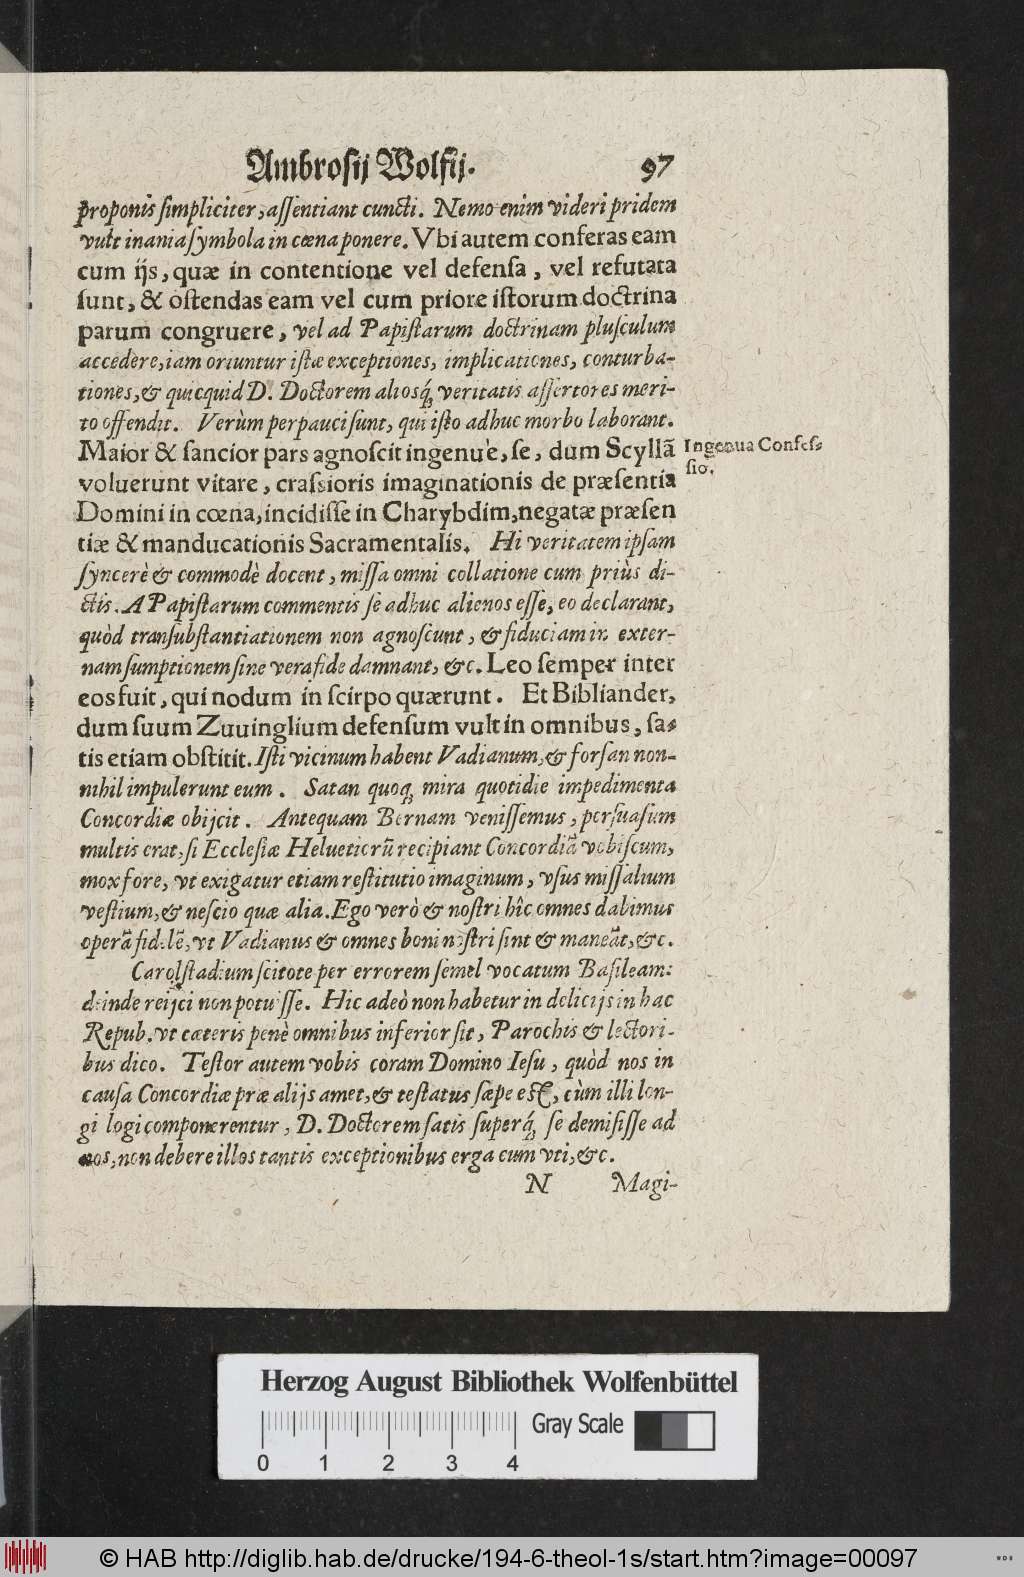 Ambrosij Wolfij. 97
proponis ſimpliciter, aſſentiant cuncti. Nemo enim videri pridem
vult inania ſymbola in cœna ponere. Vbi autem conferas eam
cum ijs, quæ in contentione vel defenſa, vel refutata
ſunt, & oſtendas eam vel cum priore iſtorum doctrina
parum congruere, vel ad Papiſtarum doctrinam pluſculum
accedere, iam oriuntur iſtæ exceptiones, implicationes, conturba-
tiones, & quicquid D. Doctorem aliosq́; veritatis aſſertores meri-
to offendit. Verùm perpauci ſunt, qui iſto adhuc morbo laborant.
Maior & ſancior pars agnoſcit ingenuè, ſe, dum Scyllã
voluerunt vitare, craſsioris imaginationis de præſentia
Domini in cœna, incidiſſe in Charybdim, negatæ præſen
tiæ & manducationis Sacramentalis. Hi veritatem ipſam
ſyncerè & commodè docent, miſſa omni collatione cum priùs di-
ctis. A Papiſtarum commentis ſe adhuc alienos eſſe, eo declarant,
quòd tranſubſtantiationem non agnoſcunt, & fiduciam in exter-
nam ſumptionem ſine vera fide damnant, &c. Leo ſemper inter
eos fuit, qui nodum in ſcirpo quærunt. Et Bibliander,
dum ſuum Zuuinglium defenſum vult in omnibus, ſa-
tis etiam obſtitit. Iſti vicinum habent Vadianum, & forſan non-
nihil impulerunt eum. Satan quoq; mira quotidie impedimenta
Concordiæ obijcit. Antequam Bernam veniſſemus, perſuaſum
multis erat, ſi Eccleſiæ Helueticrũ recipiant Concordiã vobiſcum,
mox fore, vt exigatur etiam reſtitutio imaginum, vſus miſſalium
veſtium, & neſcio quæ alia. Ego verò & noſtri hîc omnes dabimus
operã fidelẽ, vt Vadianus & omnes boni noſtri ſint & maneãt, &c.
Carolſtadium ſcitote per errorem ſemel vocatum Baſileam:
deinde reijci non potuiſſe. Hic adeò non habetur in delicijs in hac
Repub. vt cæteris penè omnibus inferior ſit, Parochis & lectori-
bus dico. Teſtor autem vobis coram Domino Ieſu, quòd nos in
cauſa Concordiæ præ alijs amet, & teſtatus ſæpe eſt, cùm illi lon-
gi logi componerentur, D. Doctorem ſatis ſuperq́; ſe demiſiſſe ad
nos, non debere illos tantis exceptionibus erga eum vti, &c.
N Magi-
Ingenua Confeſ-
ſio.
Herzog August Bibliothek Wolfenbüttel
Gray Scale
0 1 2 3 4
© HAB http://diglib.hab.de/drucke/194-6-theol-1s/start.htm?image=00097